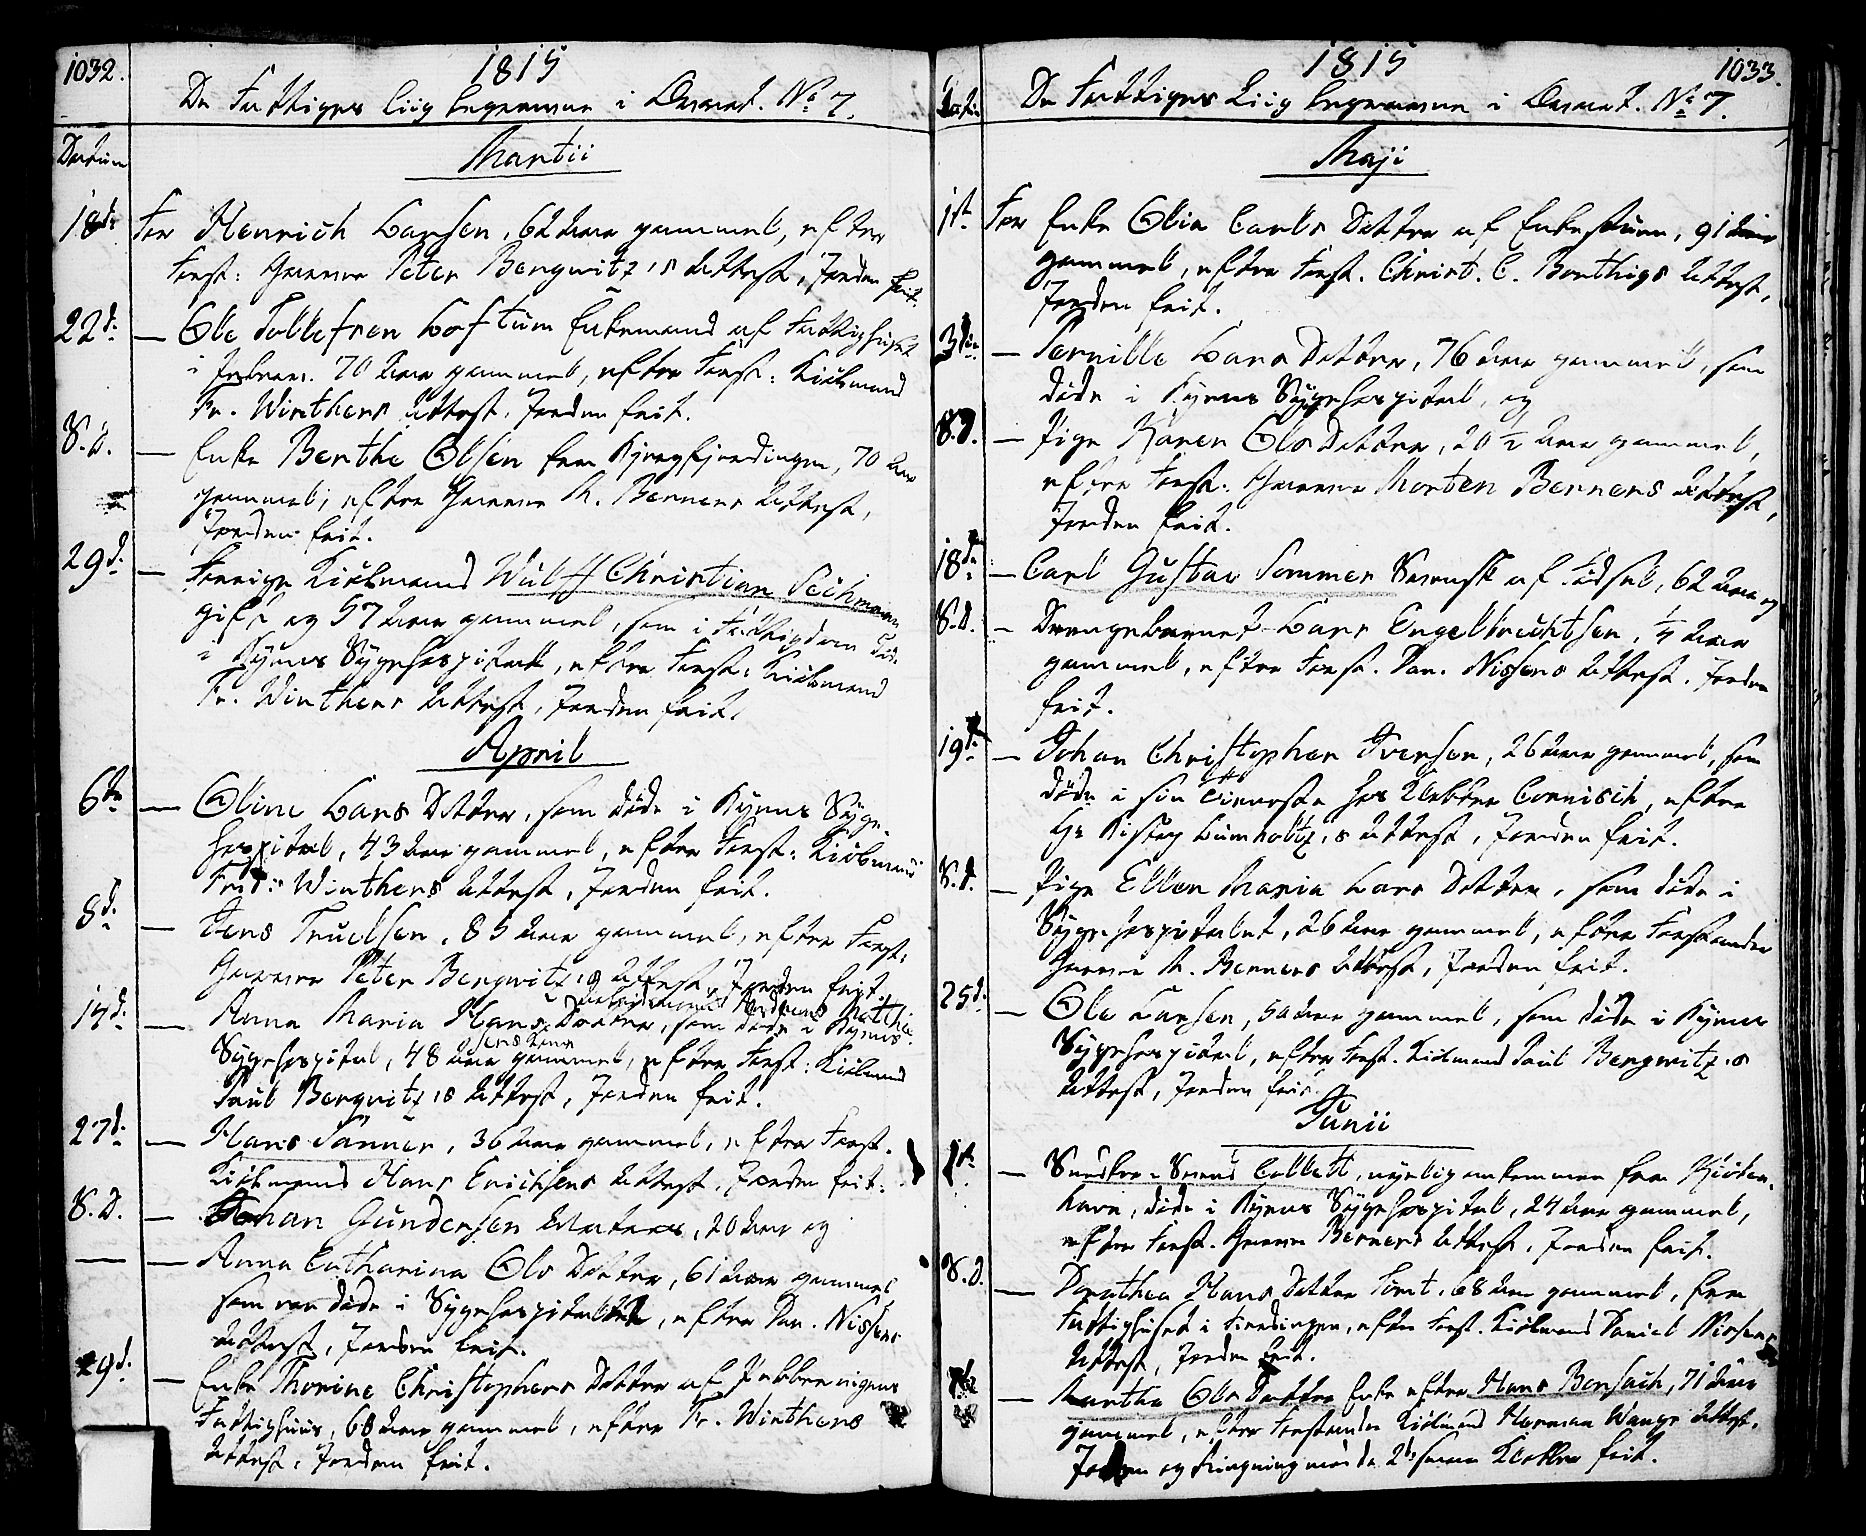 1032.
1815
De Fattiges Liig begravne i Aaret. No. 7.
Datum
Martii
18de For Henrich Larsen, 62 Aar gammel, efter
Forst: Herr Peter Bergwitz's Attest, Jorden frit.
22d. — Ole Tollefsen Loftum Enkemand af Fattighuset
i 70 Aar gammel, efter Forst: Kiøbmand
Fr. Winthers Attest, Jorden frit.
S. D. — Enke Berthe Olsen fra Fjerdingen, 70 Aar
gammel, efter Herr M. Berners Attest,
Jorden frit.
29d. — Forrige Kiøbmand Wulff Christian Pechmann
gift og 57 Aar gammel, som i Fattigdom døde
i Byens Sygehospital, efter Forst: Kiøbmand
Fr. Winthers Attest, Jorden frit.
April
6te — Oline Lars Datter, som døde i Byens Syge-
hospital, 43 Aar gammel, efter Forst: Kiøbmand
Frid: Winthers Attest, Jorden frit.
8d. — Jens Truelsen, 85 Aar gammel, efter Forst.
Herr Peter Bergwitz's Attest, Jorden frit.
Anders Mathie-
14d. — Anna Maria Hans Datter, som døde i Byens
sens Kone
Sygehospital, 48 Aar gammel, efter Forst: Kiøbmand
Paul Bergwitz's Attest, Jorden frit.
27d. — Hans Tanner, 36 Aar gammel, efter Forst.
Kiøbmand Hans Erichsens Attest, Jorden frit.
S. D. — Johan Gundersen Matros, 20 Aar og
— — Anna Catharina Ols Datter, 61 Aar gammel
som var døde i Sygehospitalet, efter Dan. Nissens
Attest, Jorden frit.
29d. — Enke Thorine Christophers Datter af
Fattighuus, 68 Aar gammel, efter Fr. Winthers
Attest, Jorden frit.
1815
1033.
Datum
De Fattiges Liig begravne i Aaret. No. 7.
Maji
1st. For Enke Olia Carls Datter af Enkestuen, 91 Aar
gammel, efter Forst. Christ. C. Borthigs Attest,
Jorden frit.
3die — Pernille Lars Datter, 76 Aar gammel, som
døde i Byens Sygehospital, og
S. D. — Pige Karen Ols Datter, 20 1/2 Aar gammel,
efter Forst: Herr Morten Berners Attest,
Jorden frit.
18d. — Carl Gustav Sommer Svensk af Fødsel, 62 Aar og
S. D. — Drengebarnet Lars Engelbrechtsen, 1/4 Aar
gammel, efter Forst. Dan. Nissens Attest. Jorden
frit.
19d. — Johan Christopher Iversen, 26 Aar gammel, som
døde i sin Tieneste hos Cornisch, efter
Hr. Lumholtz's Attest, Jorden frit.
S. D. — Pige Ellen Maria Lars Datter, som døde i
Sygehospitalet, 26 Aar gammel, efter Forstander
Herr M. Berners Attest, Jorden frit.
25d. — Ole Larsen, 50 Aar gammel, som døde i Byens
Sygehospital, efter Forst. Kiøbmand Paul Bergwitz's
Attest, Jorden frit.
Junii
1st. — Snedker-Svend Collett, nyelig ankommen fra Kiøben-
havn, døde i Byens Sygehospital, 24 Aar gammel,
efter Forst. Herr Berners Attest, Jorden frit.
S. D. — Dorothea Hans Datter 68 Aar gammel, fra
Fattighuset i Fierdingen, efter Forst. Kiøbmand Daniel Nissens
Attest, Jorden frit.
7de — Marthe Ols Datter Enke efter Hans Bensach, 71 Aar
gammel, efter Forstander Kiøbmand Herman Wangs Attest,
Jorden og Ringning med de 2de smaa Klokker frit.